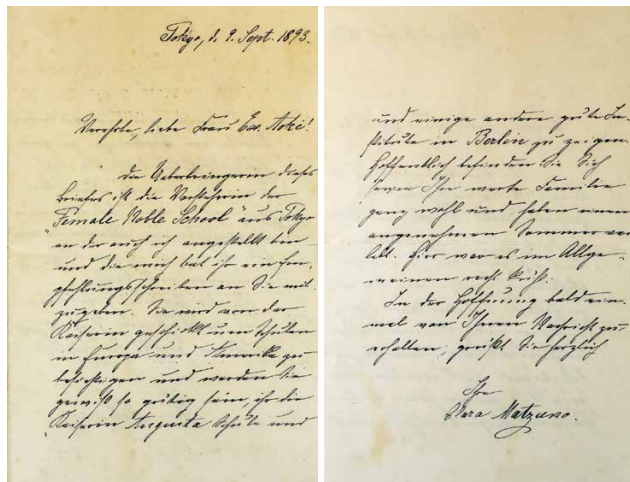 Tokyo, d. 9. Sept. 1893.
Verehrte, liebe Frau Exc. Aoki!
Die Ueberbringerin dieses
Briefes ist die Vorsteherin der
"Female Noble School" aus Tokyo
an der auch ich angestellt bin
und die mich bat ihr ein Em-
pfehlungsschreiben an Sie mit
zugeben. Sie wird von der
Kaiserin geschickt um Schulen
in Europa und Amerika zu
besichtigen und werden Sie
gewiß so gütig sein, ihr die
Kaiserin Augusta Schule und
und einige andere gute In-
stitute in Berlin zu zeigen.
Hoffentlich befinden Sie Sich
sowie Ihre werte Familie
ganz wohl und haben einen
angenehmen Sommer ver-
lebt. Hier war es im Allge-
meinen recht kühl.
In der Hoffnung bald ein-
mal von Ihnen Nachricht zu
erhalten, grüßt Sie herzlich
Ihre
Clara Matzuno.